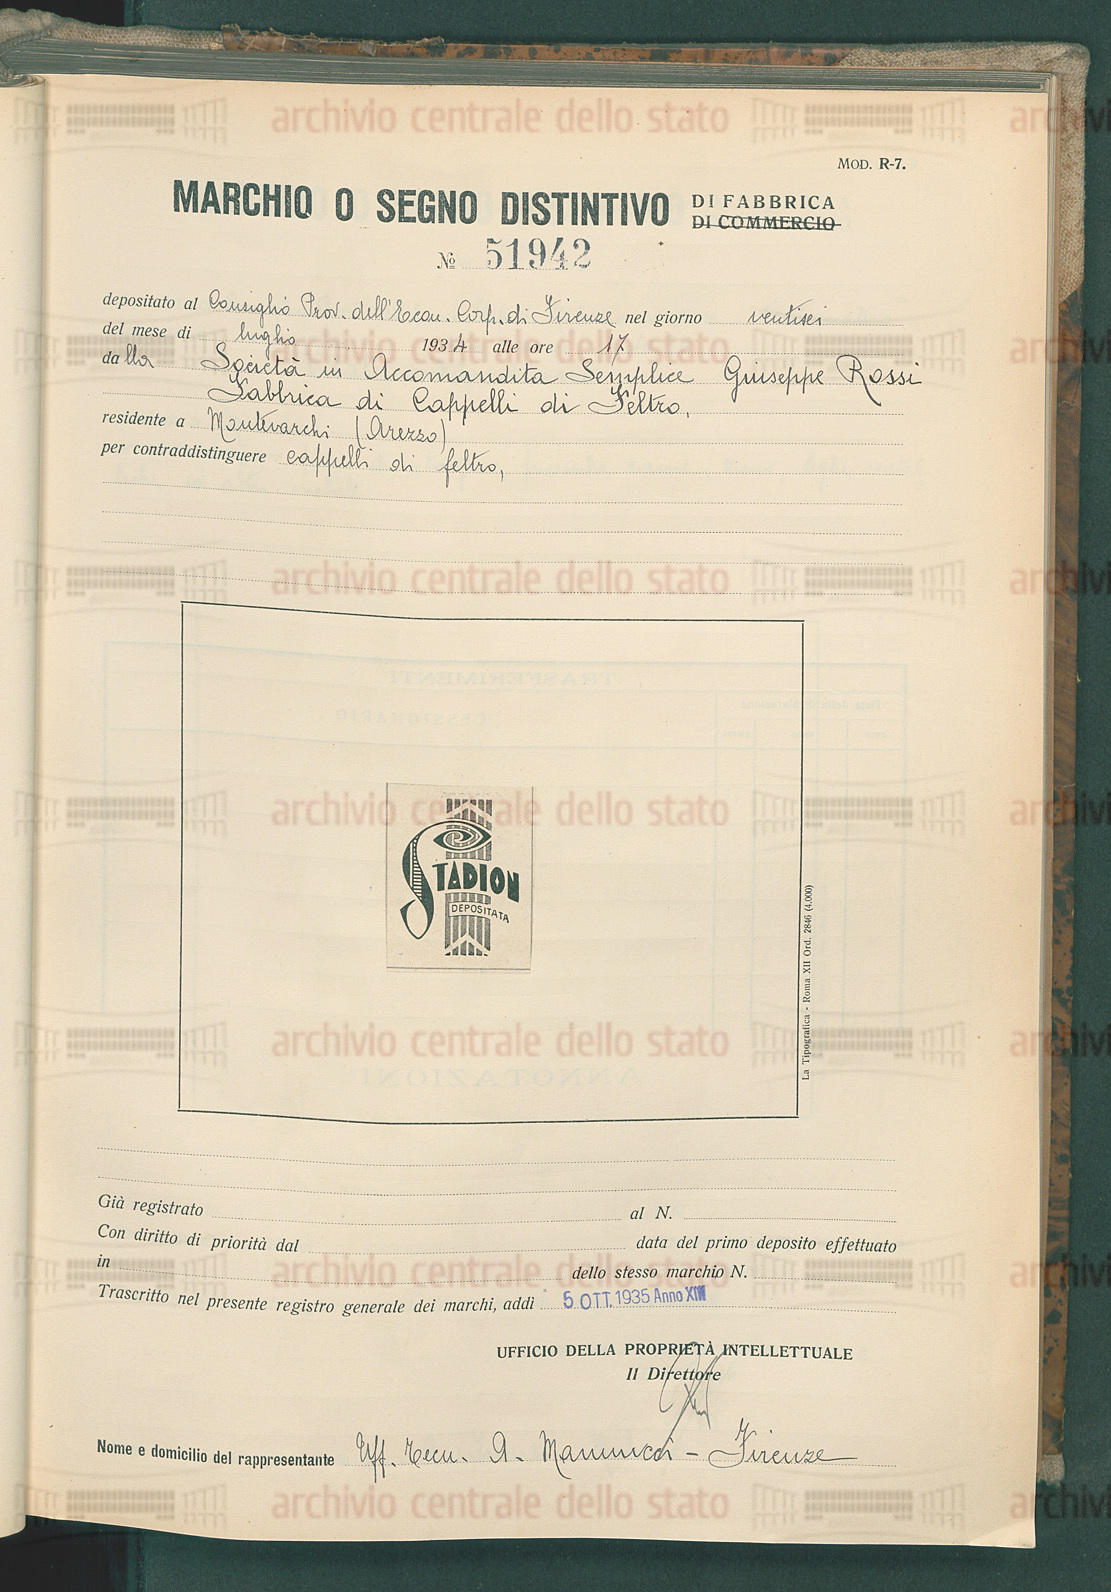 MOD. R-7.
MARCHIO O SEGNO DISTINTIVO DI FABBRICA
DI COMMERCIO
№ 51942
depositato al Consiglio Prov. dell'Econ. Corp. di Firenze nel giorno ventisei
del mese di luglio 1934 alle ore 17
dalla Società in Accomandita Semplice Giuseppe Rossi
Fabbrica di Cappelli di Feltro,
residente a Montevarchi (Arezzo)
per contraddistinguere cappelli di feltro,
STADION
DEPOSITATA
La Tipografica - Roma XII Ord. 2846 (4.000)
Già registrato al N.
Con diritto di priorità dal data del primo deposito effettuato
in dello stesso marchio N.
Trascritto nel presente registro generale dei marchi, addì 5 OTT. 1935 Anno XIII
UFFICIO DELLA PROPRIETÀ INTELLETTUALE
Il Direttore
Nome e domicilio del rappresentante Uff. Tecn. A. Mannucci - Firenze
archivio centrale dello stato
archivio centrale dello stato
archivio centrale dello stato
archivio centrale dello stato
archivio centrale dello stato
archivio centrale dello stato
archivio centrale dello stato